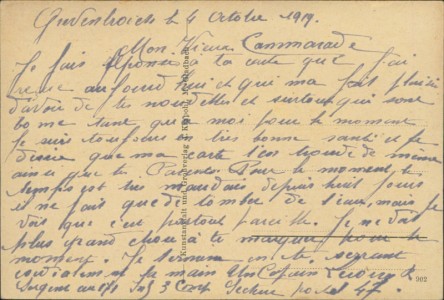 le 4 Octobre 1919.
Mon Vieux Cammarade
Je fais réponse à ta carte que j'ai
reçue aujourd'hui et qui ma fait plaisir
d'avoir de tes nouvelles et surtout qui sont
bonne tant qua moi pour le moment
Je suis toujours en très bonne santé et je
désire que ma carte t'en trouve de même
ainsi que tes Parents Pour le moment, le
temps est très mauvais depuis huit jours
il ne fait que de tomber de l'eau, mais je
vois que c'est partout pareille. Je ne vois
plus grand chose à te marquer pour le
moment. Je termine en te serrant
cordialement la main Un Copain
Sergent au 171 3 Secteur postal 47.
Kunstanstalt und
902